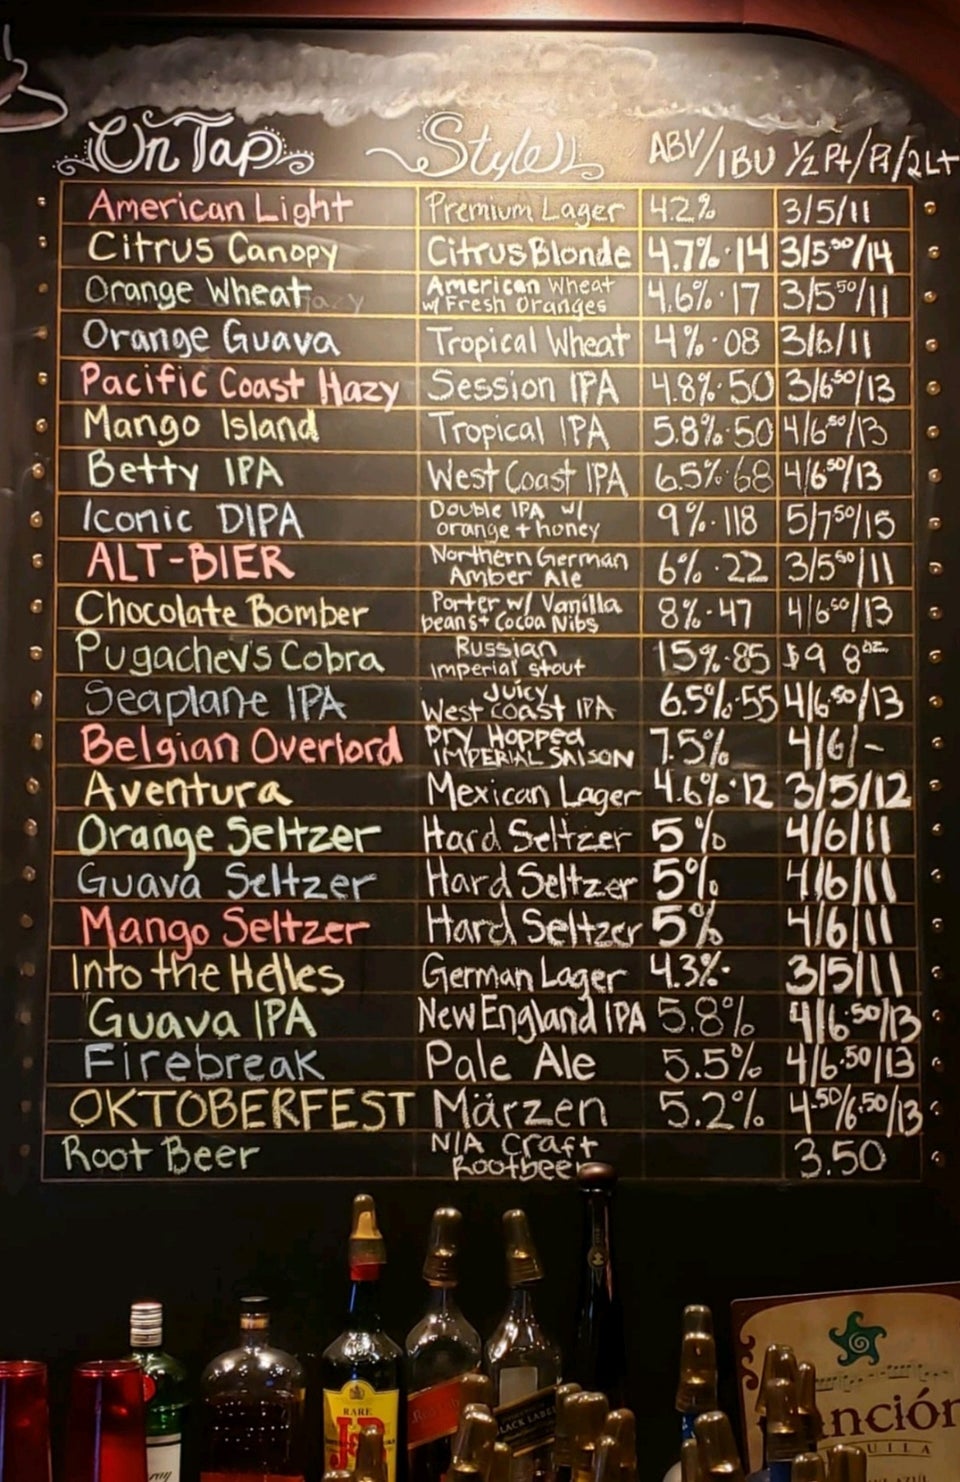 On Tap Style ABV/IBU ½ Pt/Pt/2LT
American Light Premium Lager 4.2% 3/5/11
Citrus Canopy Citrus Blonde 4.7%·14 3/5.50/14
Orange Wheat American Wheat w/ Fresh Oranges 4.6%·17 3/5.50/11
Orange Guava Tropical Wheat 4%·08 3/6/11
Pacific Coast Hazy Session IPA 4.8%·50 3/6.50/13
Mango Island Tropical IPA 5.8%·50 4/6.50/13
Betty IPA West Coast IPA 6.5%·68 4/6.50/13
Iconic DIPA Double IPA w/ orange + honey 9%·118 5/7.50/15
ALT-BIER Northern German Amber Ale 6%·22 3/5.50/11
Chocolate Bomber Porter w/ Vanilla beans + Cocoa Nibs 8%·47 4/6.50/13
Pugachev's Cobra Russian Imperial stout 15%·85 $9 8oz
Seaplane IPA Juicy West coast IPA 6.5%·55 4/6.50/13
Belgian Overlord Dry Hopped IMPERIAL SAISON 7.5% 4/6/-
Aventura Mexican Lager 4.6%·12 3/5/12
Orange Seltzer Hard Seltzer 5% 4/6/11
Guava Seltzer Hard Seltzer 5% 4/6/11
Mango Seltzer Hard Seltzer 5% 4/6/11
Into the Helles German Lager 4.3%· 3/5/11
Guava IPA New England IPA 5.8% 4/6.50/13
Firebreak Pale Ale 5.5% 4/6.50/13
OKTOBERFEST Märzen 5.2% 4.50/6.50/13
Root Beer N/A Craft Rootbeer 3.50
RARE
J&B
Red Label
BLACK LABEL